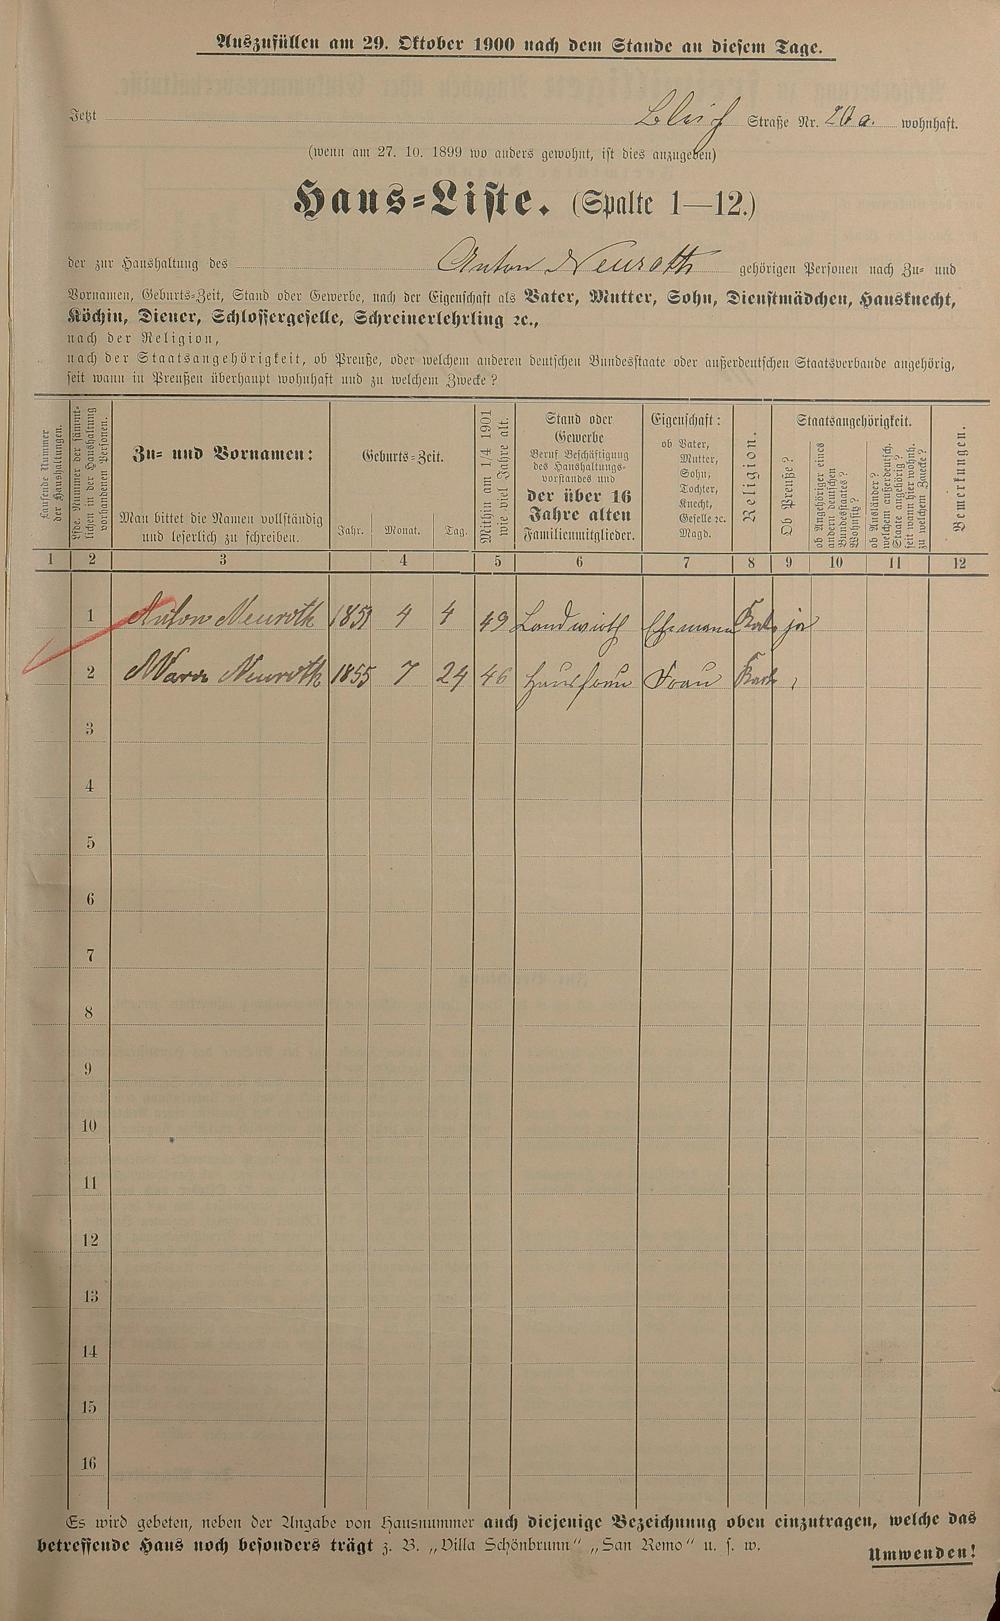 Auszufüllen am 29. Oktober 1900 nach dem Stande an diesem Tage.
Jetzt Straße Nr. 20a. wohnhaft.
(wenn am 27. 10. 1899 wo anders gewohnt, ist dies anzugeben)
Haus-Liste. (Spalte 1—12.)
der zur Haushaltung des Anton Neuroth gehörigen Personen nach Zu- und
Vornamen, Geburts-Zeit, Stand oder Gewerbe, nach der Eigenschaft als Vater, Mutter, Sohn, Dienstmädchen, Hausknecht,
Köchin, Diener, Schlossergeselle, Schreinerlehrling ꝛc.,
nach der Religion,
nach der Staatsangehörigkeit, ob Preuße, oder welchem anderen deutschen Bundesstaate oder außerdeutschen Staatsverbande angehörig,
seit wann in Preußen überhaupt wohnhaft und zu welchem Zwecke?
Laufende Nummer
der Haushaltungen.
Lfde. Nummer der sämmt-
lichen in der Haushaltung
vorhandenen Personen.
Zu- und Vornamen:
Man bittet die Namen vollständig
und leserlich zu schreiben.
Geburts-Zeit.
Jahr. Monat. Tag.
Mithin am 1/4 1901
wie viel Jahre alt.
Stand oder
Gewerbe
Beruf Beschäftigung
des Haushaltungs-
vorstandes und
der über 16
Jahre alten
Familienmitglieder.
Eigenschaft:
ob Vater,
Mutter,
Sohn,
Tochter,
Knecht,
Geselle ꝛc.
Magd.
Religion.
Staatsangehörigkeit.
Ob Preuße?
ob Angehöriger eines
andern deutschen
Bundesstaates?
Wohnsitz?
ob Ausländer?
welchem außerdeutsch.
Staate angehörig?
seit wann hier wohnh.
zu welchem Zwecke?
Bemerkungen.
1 2 3 4 5 6 7 8 9 10 11 12
1 Anton Neuroth 1851 4 4 49 Landwirth Ehemann Kath ja
2 Maria Neuroth 1855 7 24 46 Hausfrau Frau Kath
3
4
5
6
7
8
9
10
11
12
13
14
15
16
Es wird gebeten, neben der Angabe von Hausnummer auch diejenige Bezeichnung oben einzutragen, welche das
betreffende Haus noch besonders trägt z. B. „Villa Schönbrunn" „San Remo" u. s. w.
Umwenden!